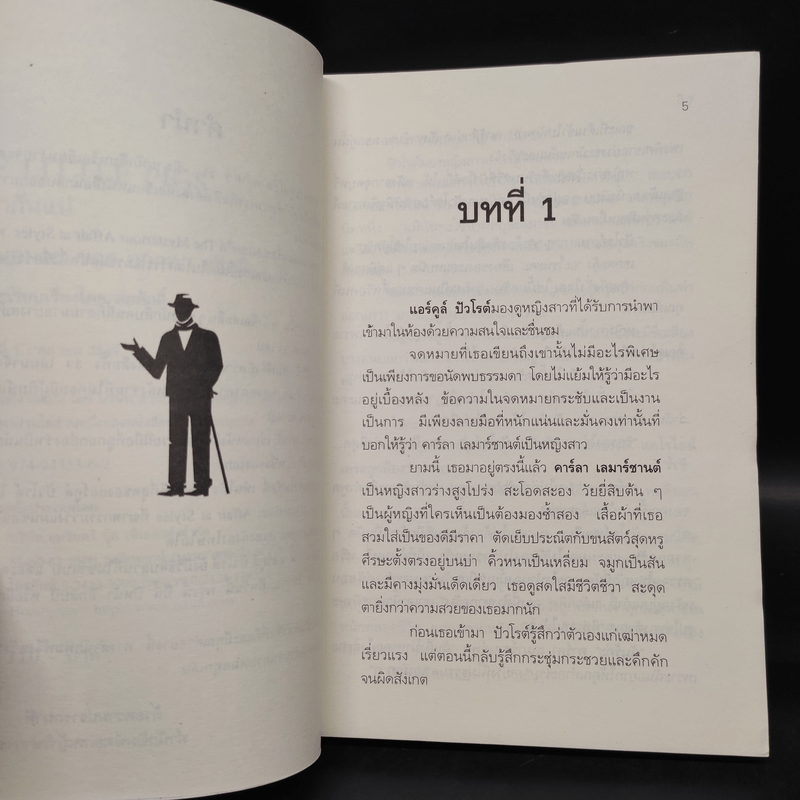 5
บทที่ 1
แอร์คูล์ ปัวโรต์มองดูหญิงสาวที่ได้รับการนำพา
เข้ามาในห้องด้วยความสนใจและชื่นชม
จดหมายที่เธอเขียนถึงเขานั้นไม่มีอะไรพิเศษ
เป็นเพียงการขอนัดพบธรรมดา โดยไม่แย้มให้รู้ว่ามีอะไร
อยู่เบื้องหลัง ข้อความในจดหมายกระชับและเป็นงาน
เป็นการ มีเพียงลายมือที่หนักแน่นและมั่นคงเท่านั้นที่
บอกให้รู้ว่า คาร์ลา เลมาร์ชานต์เป็นหญิงสาว
ยามนี้ เธอมาอยู่ตรงนี้แล้ว คาร์ลา เลมาร์ชานต์
เป็นหญิงสาวร่างสูงโปร่ง สะโอดสะอง วัยยี่สิบต้น ๆ
เป็นผู้หญิงที่ใครเห็นเป็นต้องมองซ้ำสอง เสื้อผ้าที่เธอ
สวมใส่เป็นของดีมีราคา ตัดเย็บประณีตกับขนสัตว์สุดหรู
ศีรษะตั้งตรงอยู่บนบ่า คิ้วหนาเป็นเหลี่ยม จมูกเป็นสัน
และมีคางมุ่งมั่นเด็ดเดี่ยว เธอดูสดใสมีชีวิตชีวา สะดุด
ตายิ่งกว่าความสวยของเธอมากนัก
ก่อนเธอเข้ามา ปัวโรต์รู้สึกว่าตัวเองแก่เฒ่าหมด
เรี่ยวแรง แต่ตอนนี้กลับรู้สึกกระชุ่มกระชวยและคึกคัก
จนผิดสังเกต